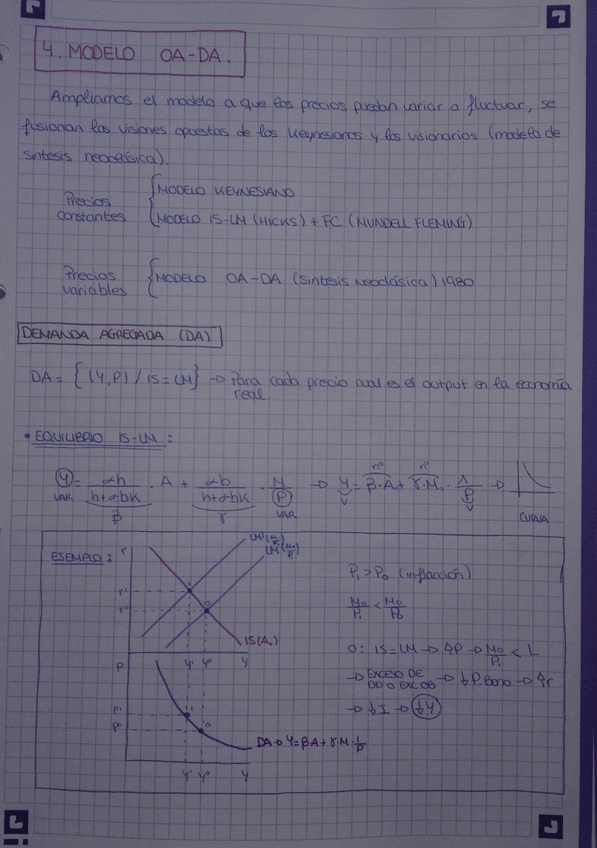 4. MODELO OA-DA.
Ampliamos el modelo a que los precios puedan variar o fluctuar, se
fusionan las visiones opuestas de los keynesianos y los visionarios (modelo de
síntesis neoclásica).
Precios constantes { MODELO KEYNESIANO
MODELO IS-LM (HICKS) + FC (MUNDELL FLEMING)
Precios variables { MODELO OA-DA (síntesis neoclásica) 1980
DEMANDA AGREGADA (DA)
DA = { (Y,P) / IS = LM } → Para cada precio cual es el output en la economía
real.
• EQUILIBRIO IS-LM:
Y = αh / h+αbk · A + αb / h+αbk · M / P → Y = β·A + γ·M · 1/P →
VAR β γ VAR V V CURVA
ESEMPLO:
r
LM'(M₀/P₁)
LM(M₀/P₀)
r¹
r⁰
1
0
IS(A₀)
Y¹ Y⁰ Y
P
P¹
P⁰
1
0
DA→Y=βA+γ·M·1/P
Y¹ Y⁰ Y
P₁ > P₀ (inflacción)
M₀/P₁ < M₀/P₀
0: IS=LM → ↑P → M₀/P₁ < L
→ EXCESO DE
→ ↓P.Bono → ↑r
→ ↓I → ↓Y